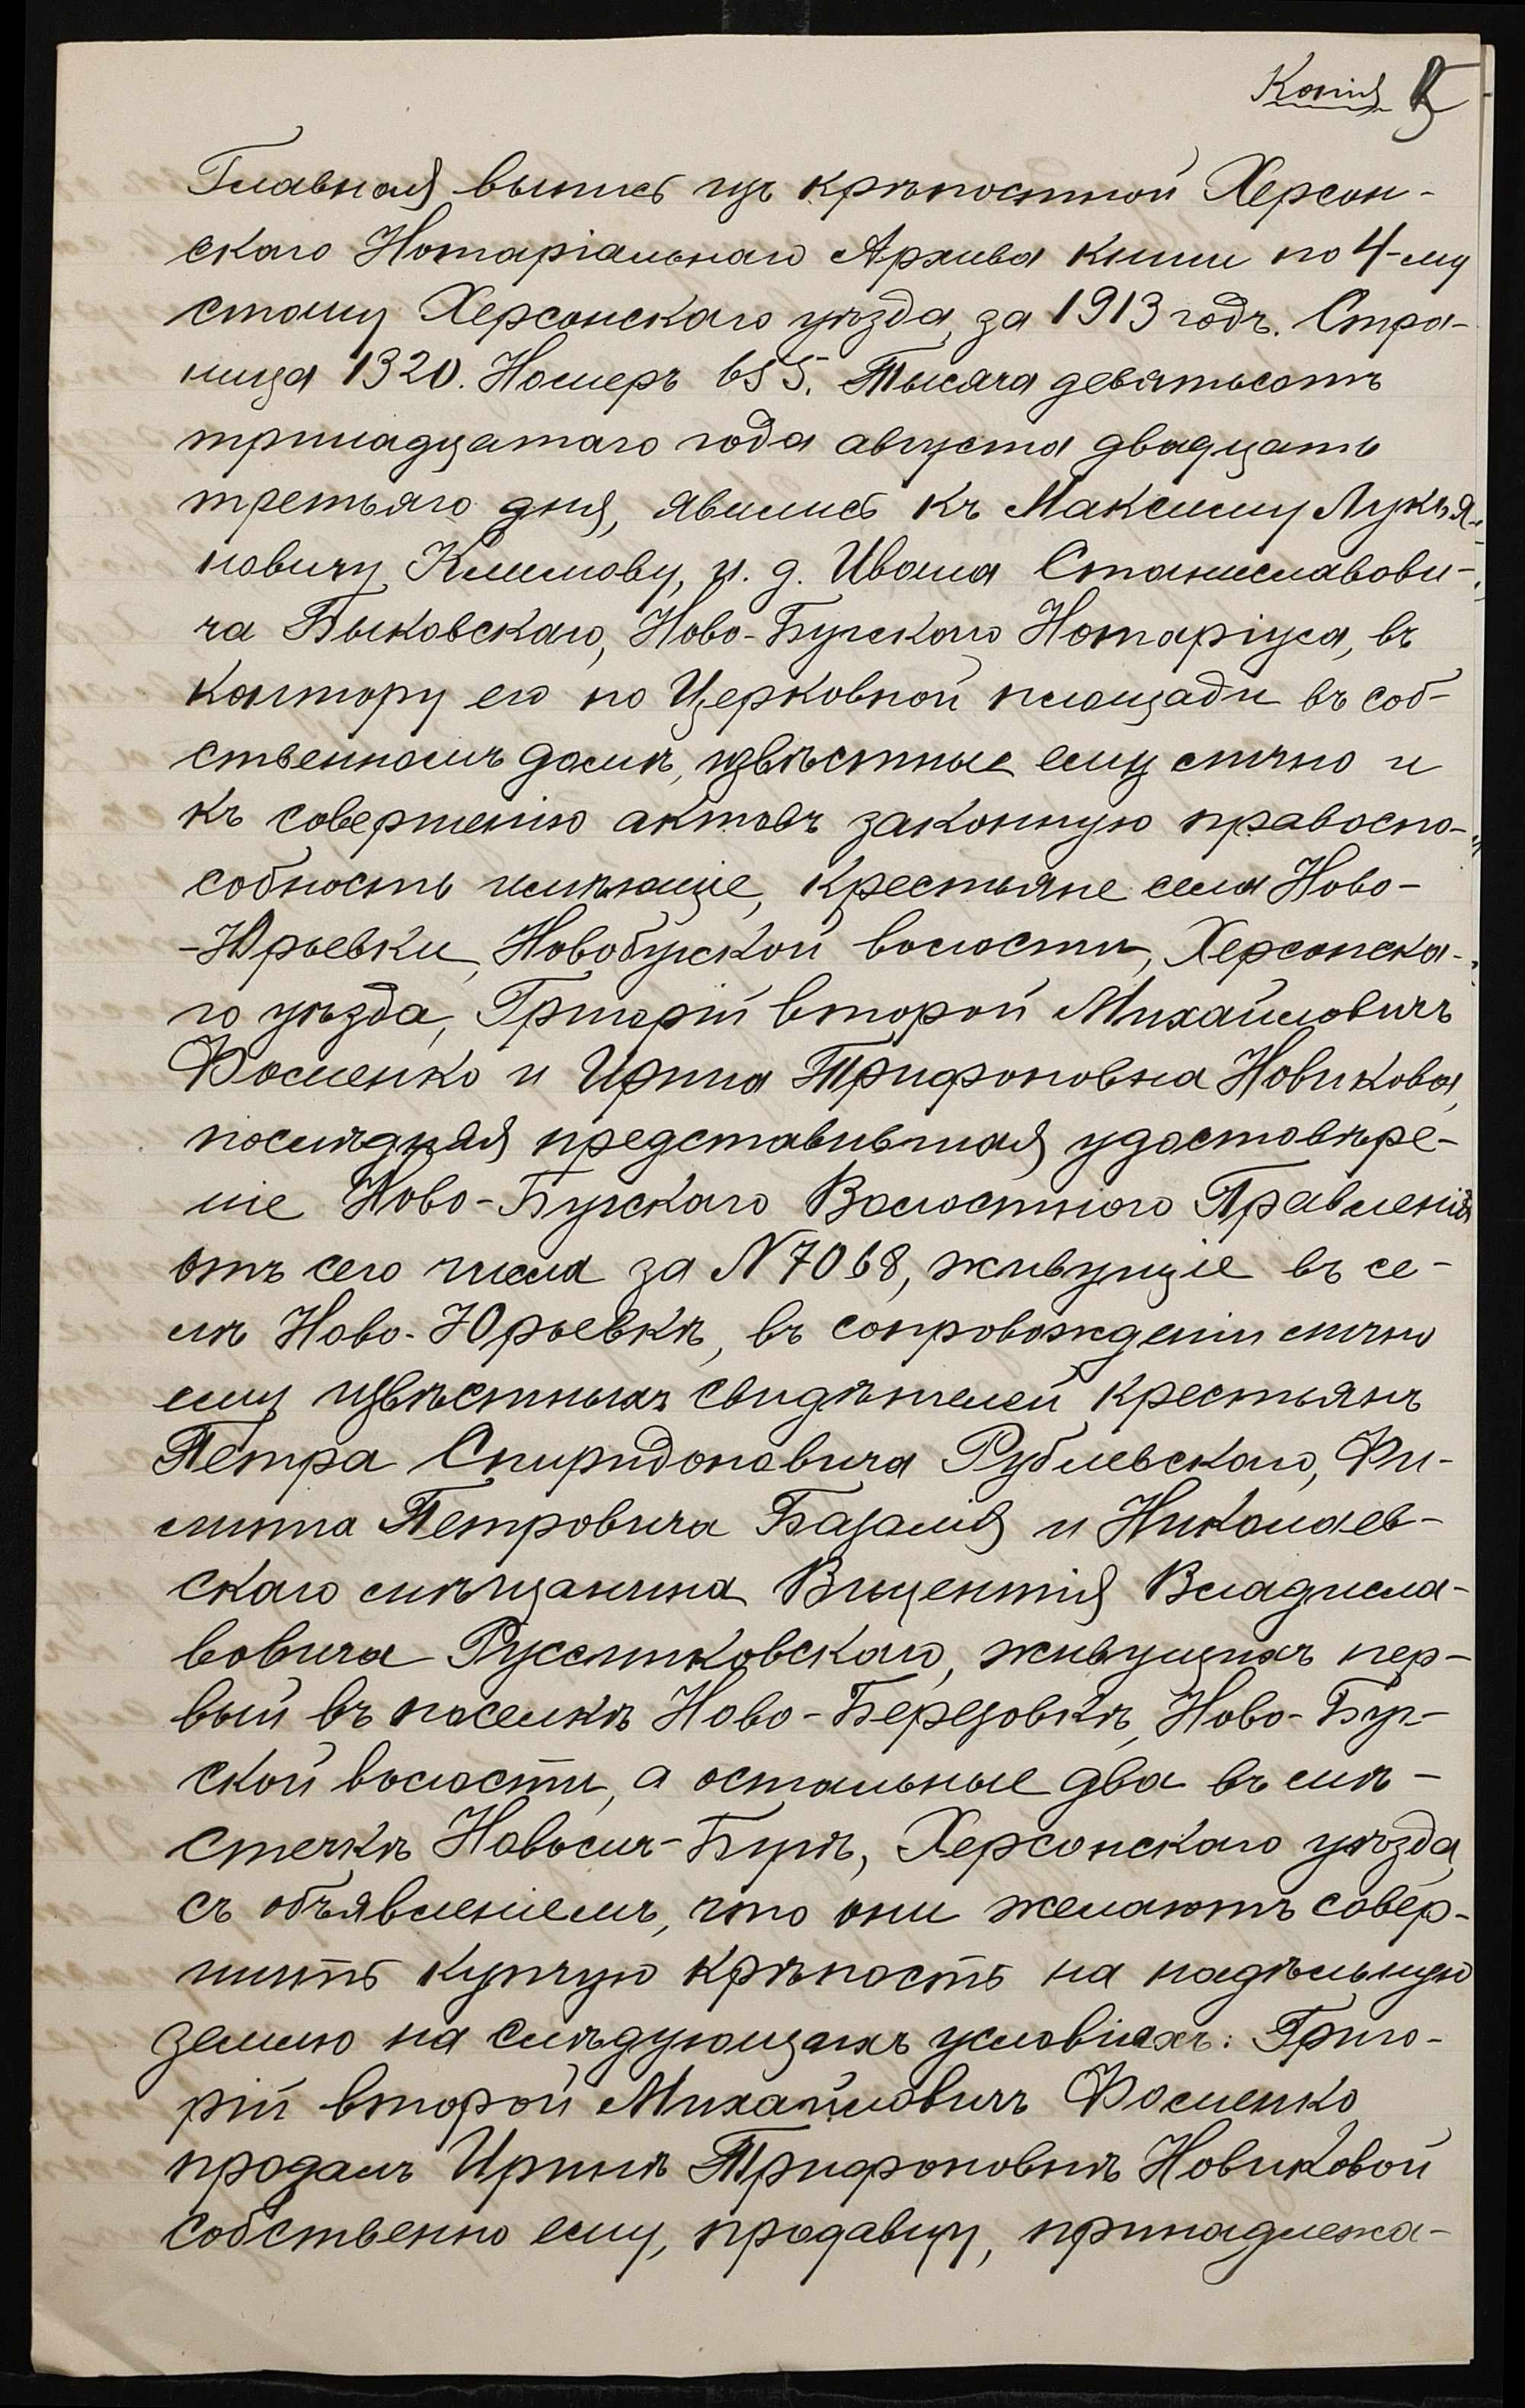 Копія 5
Главная выпись изъ крѣпостной Херсон-
скаго Нотаріальнаго Архива книги по 4-му
стану Херсонскаго уѣзда, за 1913 годъ. Стра-
ница 1320. Номеръ 655. Тысяча девятьсотъ
тринадцатаго года августа двадцать
третьяго дня, явились къ Максиму Лукья-
новичу Климову, и. д. Ивана Станиславови-
ча Быковскаго, Ново-Бугскаго Нотаріуса, въ
контору его по Церковной площади въ соб-
ственномъ домѣ, извѣстные ему лично и
къ совершенію актовъ законную правоспо-
собность имѣющіе, крестьяне села Ново-
-Юрьевки, Новобугской волости, Херсонска-
го уѣзда, Григорій второй Михайловичъ
Фоменко и Ирина Трифоновна Новикова,
послѣдняя представившая удостовѣре-
ніе Ново-Бугскаго Волостного Правленія
отъ сего числа за N 7068, живущіе въ се-
лѣ Ново-Юрьевкѣ, въ сопровожденіи лично
ему извѣстныхъ свидѣтелей крестьянъ
Петра Спиридоновича Рублевскаго, Фи-
липпа Петровича Базалія и Николаев-
скаго мѣщанина Викентія Владисла-
вовича Русликовскаго, живущихъ пер-
вый въ поселкѣ Ново-Березовкѣ, Ново-Буг-
ской волости, а остальные два въ мѣ-
стечкѣ Новомъ-Бугѣ, Херсонскаго уѣзда,
съ объявленіемъ, что они желаютъ совер-
шить купчую крѣпость на надѣльную
землю на слѣдующихъ условіяхъ: Григо-
рій второй Михайловичъ Фоменко
продалъ Иринѣ Трифоновнѣ Новиковой
собственно ему, продавцу, принадлежа-